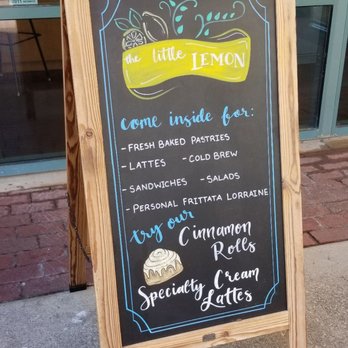 the little LEMON
come inside for:
- FRESH BAKED PASTRIES
- LATTES - COLD BREW
- SANDWICHES - SALADS
- PERSONAL FRITTATA LORRAINE
try our
Cinnamon
Rolls
Specialty Cream
Lattes